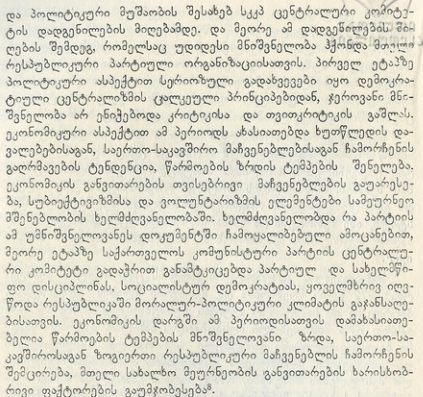 და პოლიტიკური მუშაობის შესახებ სკკპ ცენტრალური კომიტე-
ტის დადგენილების მიღებამდე. და მეორე ამ დადგენილების მი-
ღების შემდეგ, რომელსაც უდიდესი მნიშვნელობა ჰქონდა მთელი
რესპუბლიკური პარტიული ორგანიზაციისათვის. პირველ ეტაპზე
პოლიტიკური ასპექტით სერიოზული გადახვევები იყო დემოკრა-
ტიული ცენტრალიზმის ცალკეული პრინციპებიდან, ჯეროვანი მნი-
შვნელობა არ ენიჭებოდა კრიტიკისა და თვითკრიტიკის გაშლას.
ეკონომიკური ასპექტით ამ პერიოდს ახასიათებდა ხუთწლედის და-
ვალებებისაგან, საერთო-საკავშირო მაჩვენებლებისაგან ჩამორჩენის
გაღრმავების ტენდენცია, წარმოების ზრდის ტემპების შენელება.
ეკონომიკის განვითარების თვისებრივი მაჩვენებლების გაუარესე-
ბა, სუბიექტივიზმისა და ვოლუნტარიზმის ელემენტები სამეურნეო
მშენებლობის ხელმძღვანელობაში. ხელმძღვანელობდა რა პარტიის
ამ უმნიშვნელოვანეს დოკუმენტში ჩამოყალიბებული ამოცანებით,
მეორე ეტაპზე საქართველოს კომუნისტური პარტიის ცენტრალუ-
რი კომიტეტი გადაჭრით განამტკიცებდა პარტიულ და სახელმწი-
ფო დისციპლინას, სოციალისტურ დემოკრატიას, ყოველმხრივ იღვ-
წოდა რესპუბლიკაში მორალურ-პოლიტიკური კლიმატის გაჯანსაღე-
ბისათვის. ეკონომიკის დარგში ამ პერიოდისათვის დამახასიათე-
ბელია წარმოების ტემპების მნიშვნელოვანი ზრდა, საერთო-სა-
კავშიროსაგან ზოგიერთი რესპუბლიკური მაჩვენებლის ჩამორჩენის
შემცირება, მთელი სახალხო მეურნეობის განვითარების ხარისხობ-
რივი ფაქტორების გაუმჯობესება⁸.